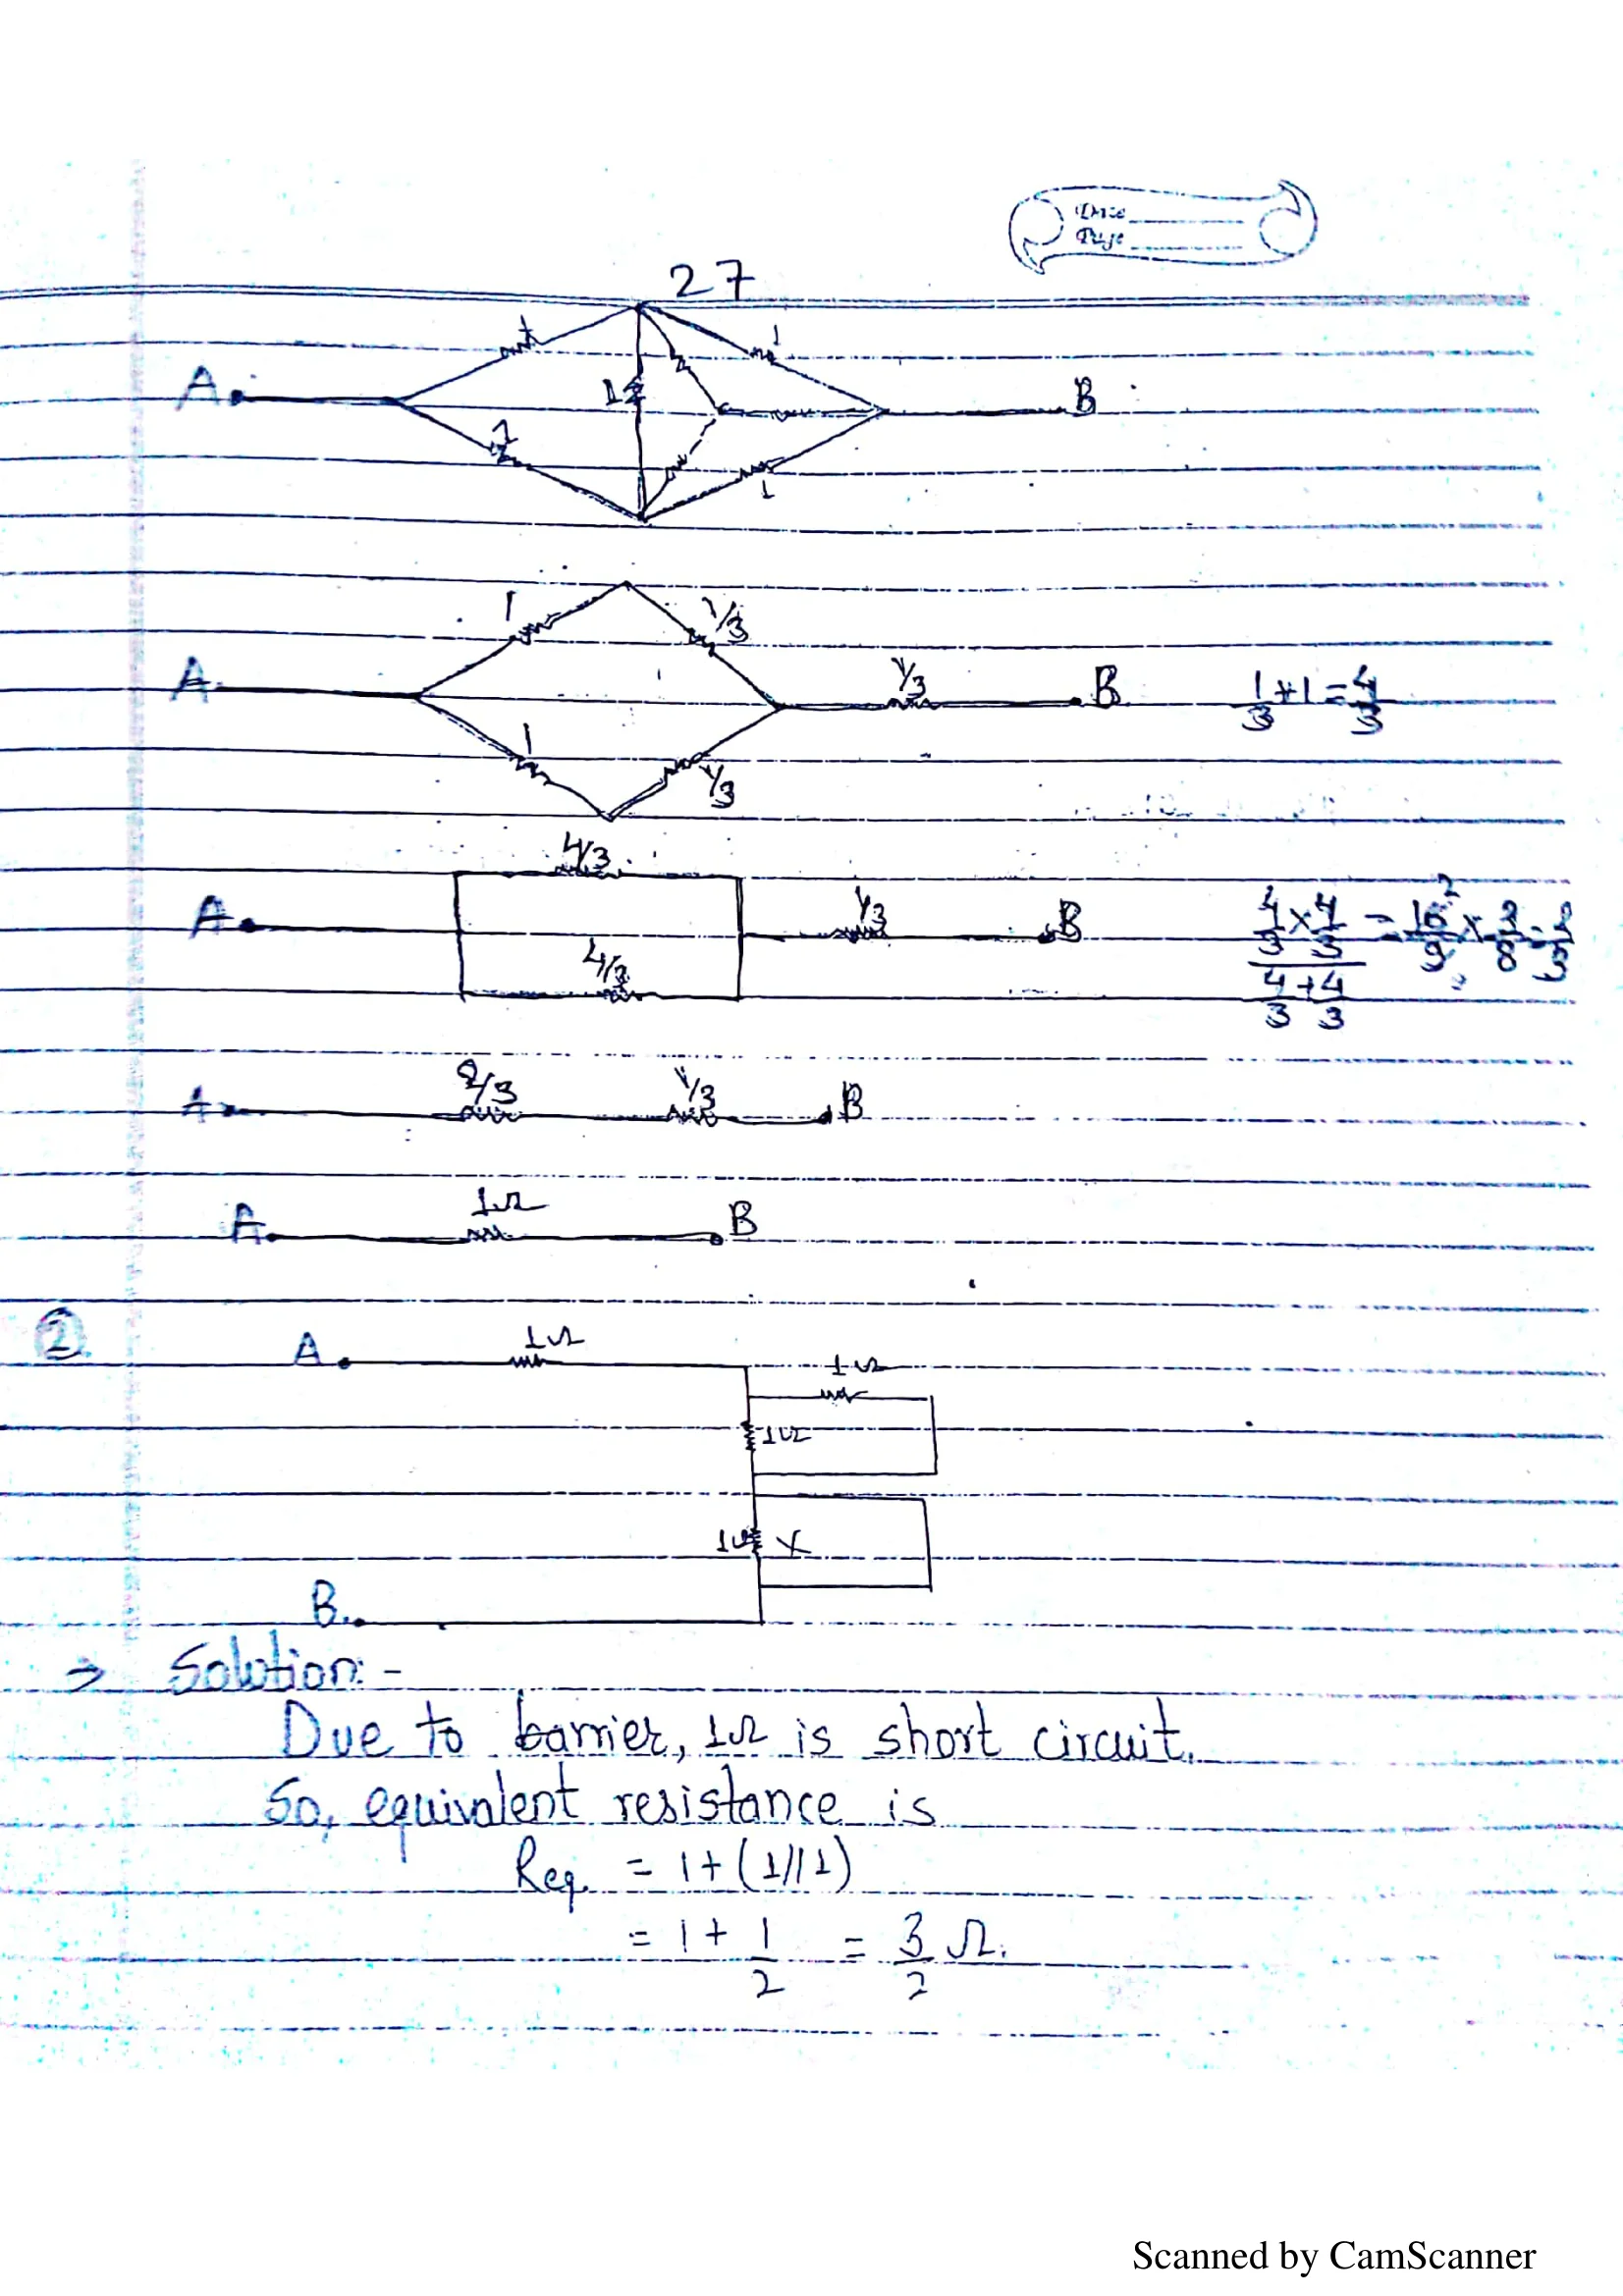 Date
Page
27
1
1
A
1
B
1
1
1
1/3
A
1/3
B
1/3 + 1 = 4/3
1
1/3
4/3
A
1/3
B
4/3 × 4/3 / 4/3 + 4/3 = 16/9 × 3/8 = 2/3
4/3
A
2/3
1/3
B
1Ω
A
B
②
A
1Ω
1Ω
1Ω
1Ω X
B
⇒ Solution:-
Due to barrier, 1Ω is short circuit.
So, equivalent resistance is
Req. = 1 + (1//1)
= 1 + 1/2 = 3/2 Ω.
Scanned by CamScanner